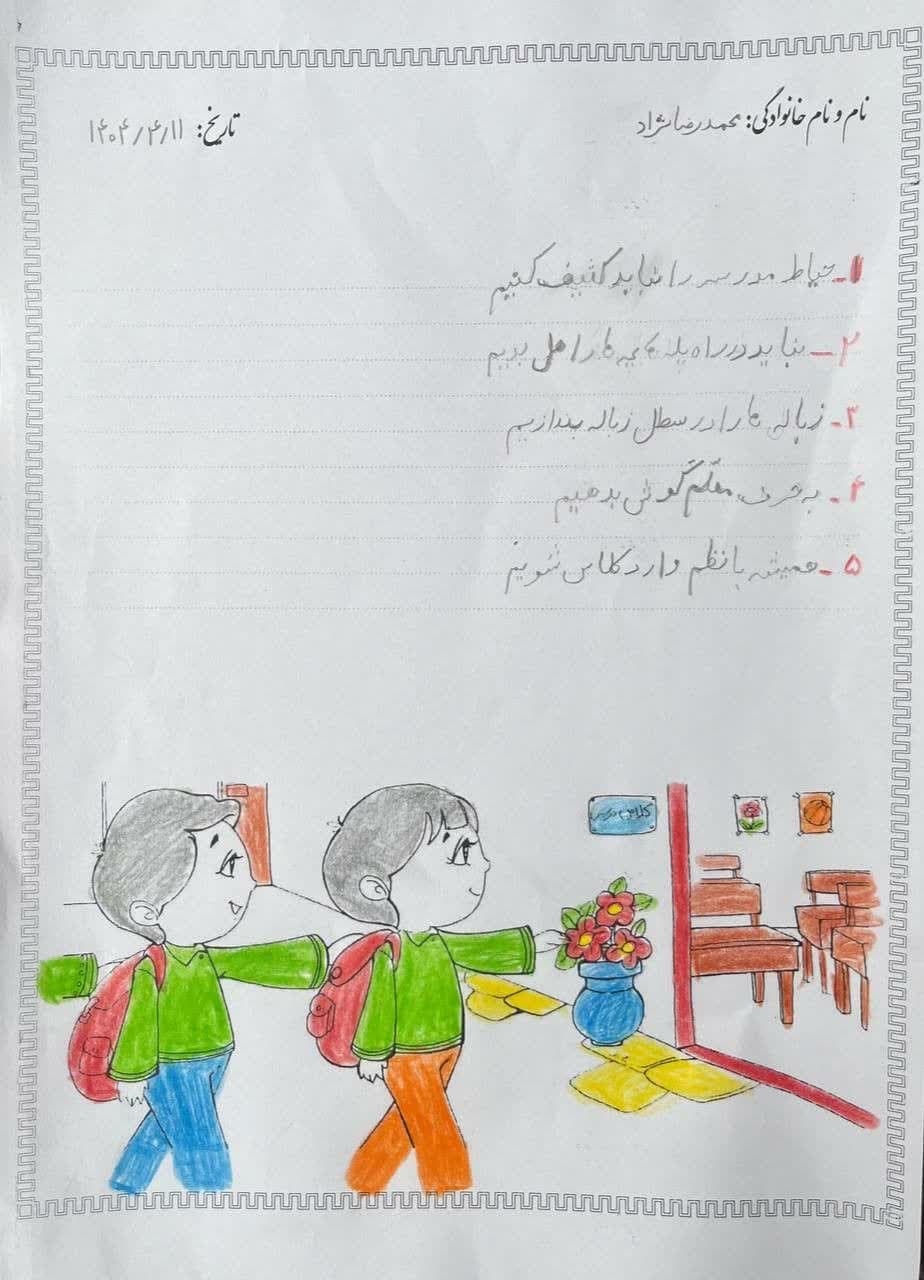 نام و نام خانوادگی: محمدرضانژاد
تاریخ: ۱۴۰۴/۴/۱۱
۱- حیاط مدرسه را نباید کثیف کنیم
۲- نباید در راه پله بچه ها را هل بدیم
۳- زباله ها را در سطل زباله بندازیم
۴- به حرف معلّم گوش بدهیم
۵- همیشه با نظم وارد کلاس شویم
کلاس درس